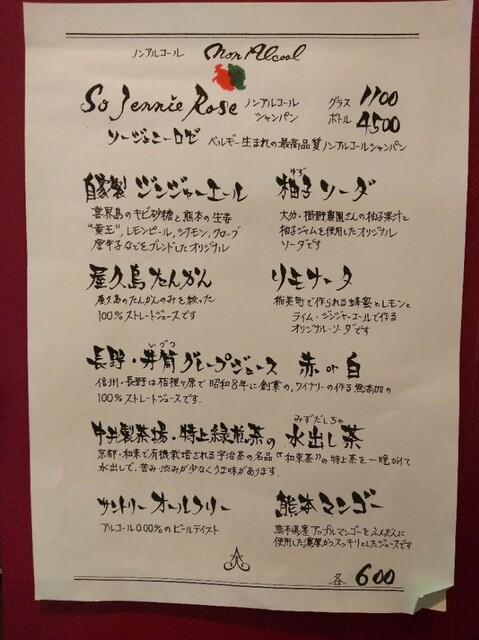 ノンアルコール Non Alcool
So Jennie Rose ノンアルコール シャンパン グラス 1100
ボトル 4500
ソージェニーロゼ ベルギー生まれの最高品質ノンアルコールシャンパン
自家製 ジンジャーエール
喜界島のキビ砂糖と熊本の生姜
"黄王"、レモンピール、シナモン、クローブ
唐辛子などをブレンドしたオリジナル
ゆず
柚子ソーダ
大分・櫛野農園さんの柚子果汁と
柚子ジャムを使用したオリジナル
ソーダです
屋久島たんかん
屋久島のたんかんのみを絞った
100%ストレートジュースです
リモナータ
で作られる蜂蜜とレモンと
ライム・ジンジャーエールで作る
オリジナル・ソーダです
いづつ
長野・井筒グレープジュース 赤 or 白
信州・長野は桔梗ヶ原で昭和8年に創業の、ワイナリーの作る無添加の
100%ストレートジュースです.
みずだしちゃ
製茶場・特上緑煎茶の 水出し茶
京都・和束で有機栽培される宇治茶の名品 "和束茶"の特上茶を一晩かけて
水出しで、苦み・渋みが少なくうま味があります.
サントリー オールフリー
アルコール0.00%のビールテイスト
熊本マンゴー
熊本県産アップルマンゴーをふんだんに
使用した濃厚かつスッキリとしたジュースです
各 600